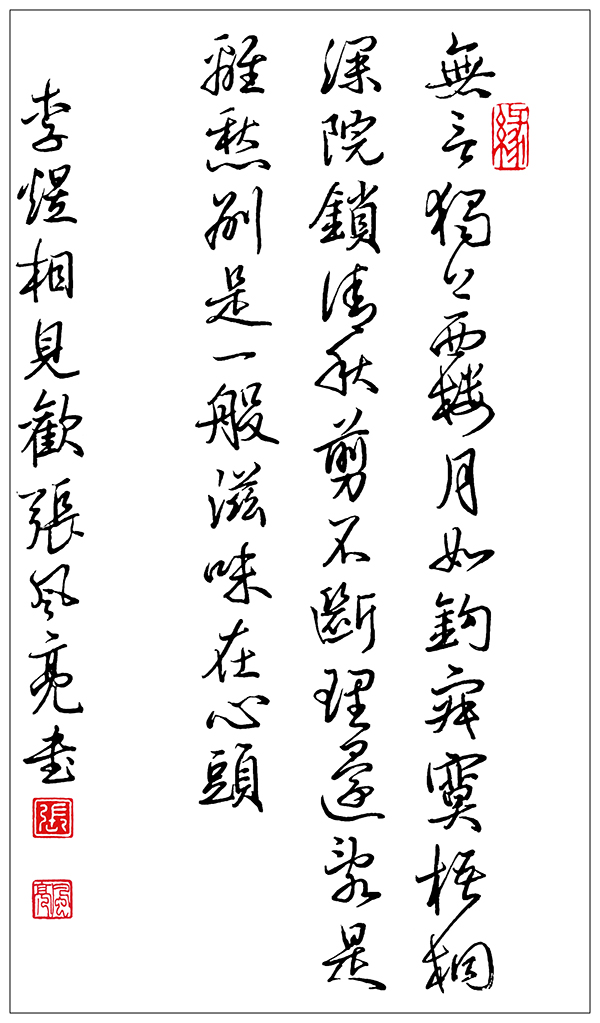 緣
無言獨上西樓月如鉤寂寞梧桐
深院鎖清秋剪不斷理還亂是
離愁別是一般滋味在心頭
李煜相見歡張风亮書
張
風亮